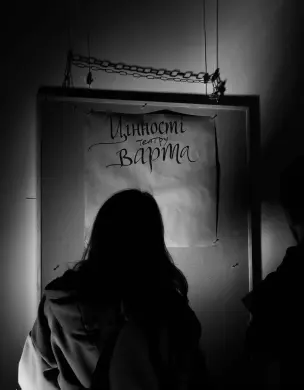 Цінності
театру
Варта